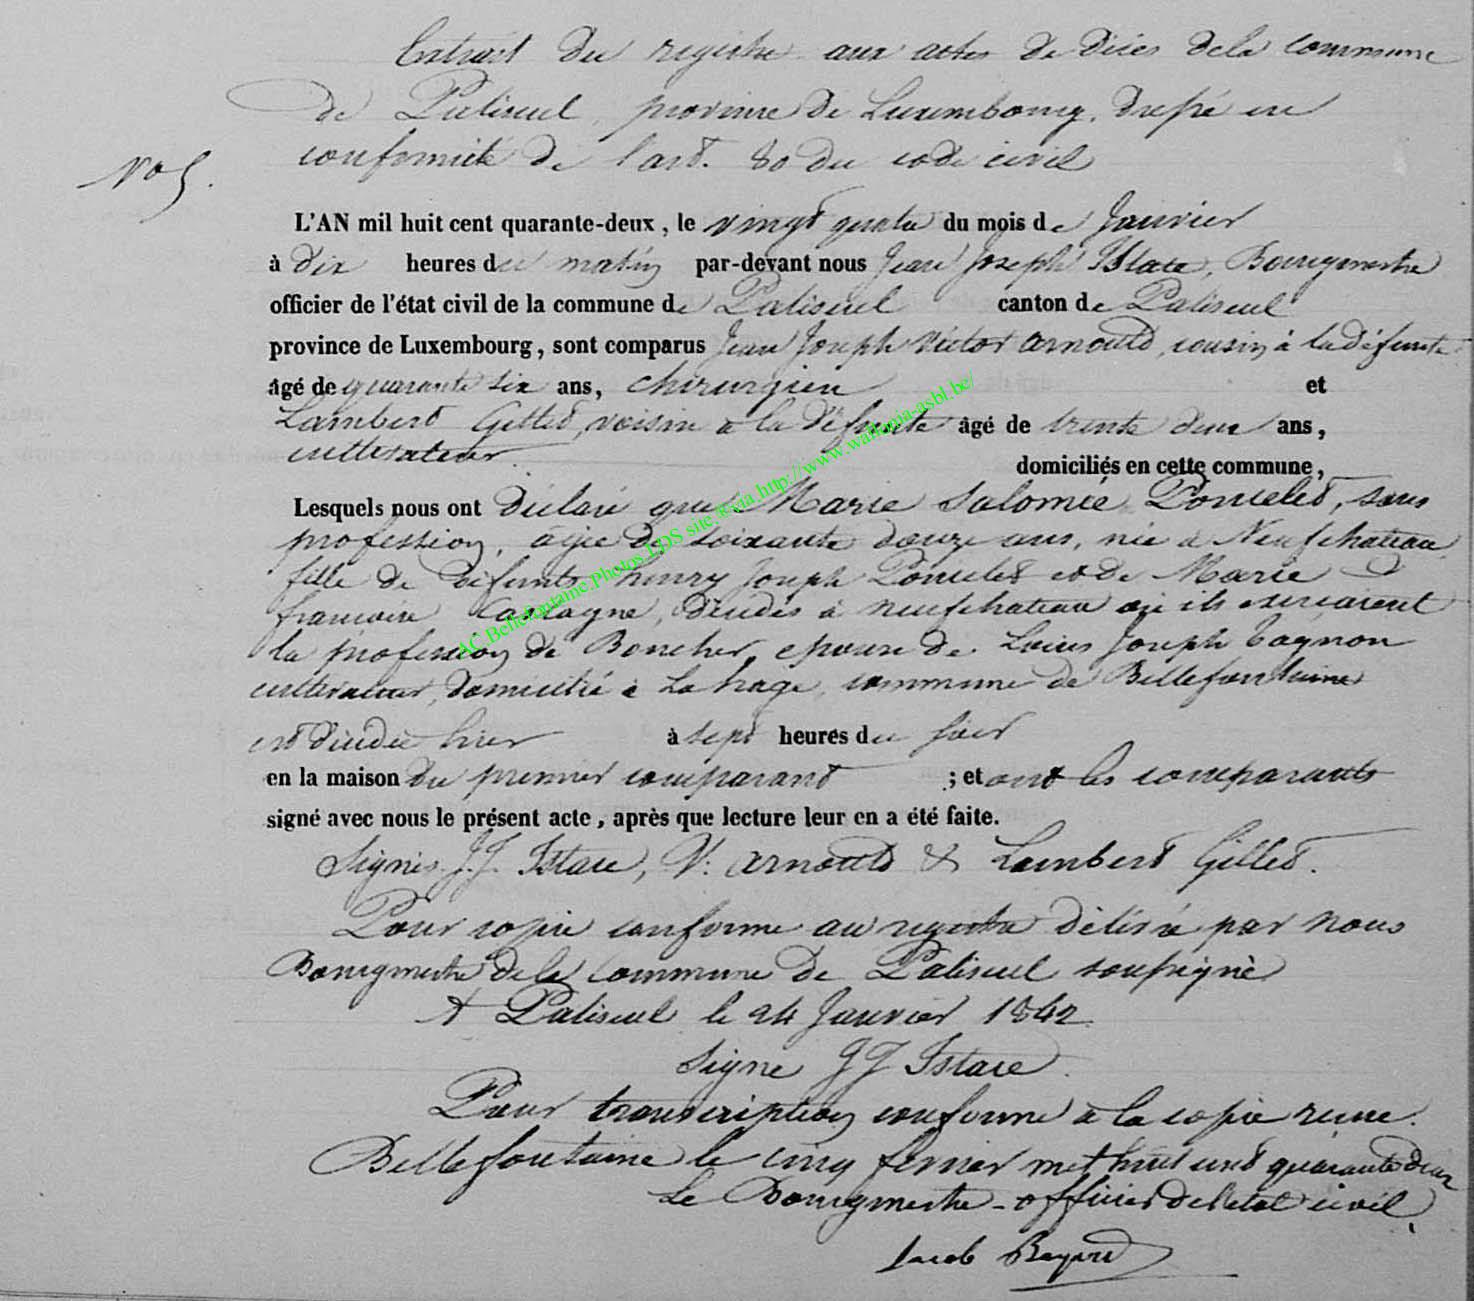 Extrait du registre aux actes de décès de la commune
de Paliseul, province de Luxembourg, dressé en
conformité de l'art. 80 du code civil
No 5.
L'AN mil huit cent quarante-deux, le vingt quatre du mois de Janvier
à dix heures du matin par-devant nous Jean Joseph Istace, Bourgmestre
officier de l'état civil de la commune de Paliseul canton de Paliseul
province de Luxembourg, sont comparus Jean Joseph Victor Arnould, cousin à la défunte
âgé de quarante six ans, chirurgien et
Lambert Gillet, voisin à la défunte âgé de trente deux ans,
cultivateur domiciliés en cette commune,
Lesquels nous ont déclaré que Marie Salomée Poncelet, sans
profession, âgée de soixante douze ans, née à Neufchateau
fille de défunts henry Joseph Poncelet et de Marie
francoise, décédés à neufchateau où ils exercaient
la profession de Boucher, epouse de Louis Joseph Tagnon
cultivateur, domicilié à Lahage, commune de Bellefontaine
est décédée hier à sept heures du soir
en la maison du premier comparant ; et ont les comparants
signé avec nous le présent acte, après que lecture leur en a été faite.
Signés J. J. Istace, V. Arnould & Lambert Gillet.
Pour copie conforme au registre délivré par nous
Bourgmestre de la Commune de Paliseul soussigné
A Paliseul le 24 Janvier 1842
Signé J J Istace.
Pour transcription conforme à la copie recue.
Bellefontaine le cinq fevrier mil huit cent quarante deux
Le Bourgmestre - officier de l'etat civil,
Jacob Bayard
AC Bellefontaine. Photos LDS site & via http://www.wallonia-asbl.be/